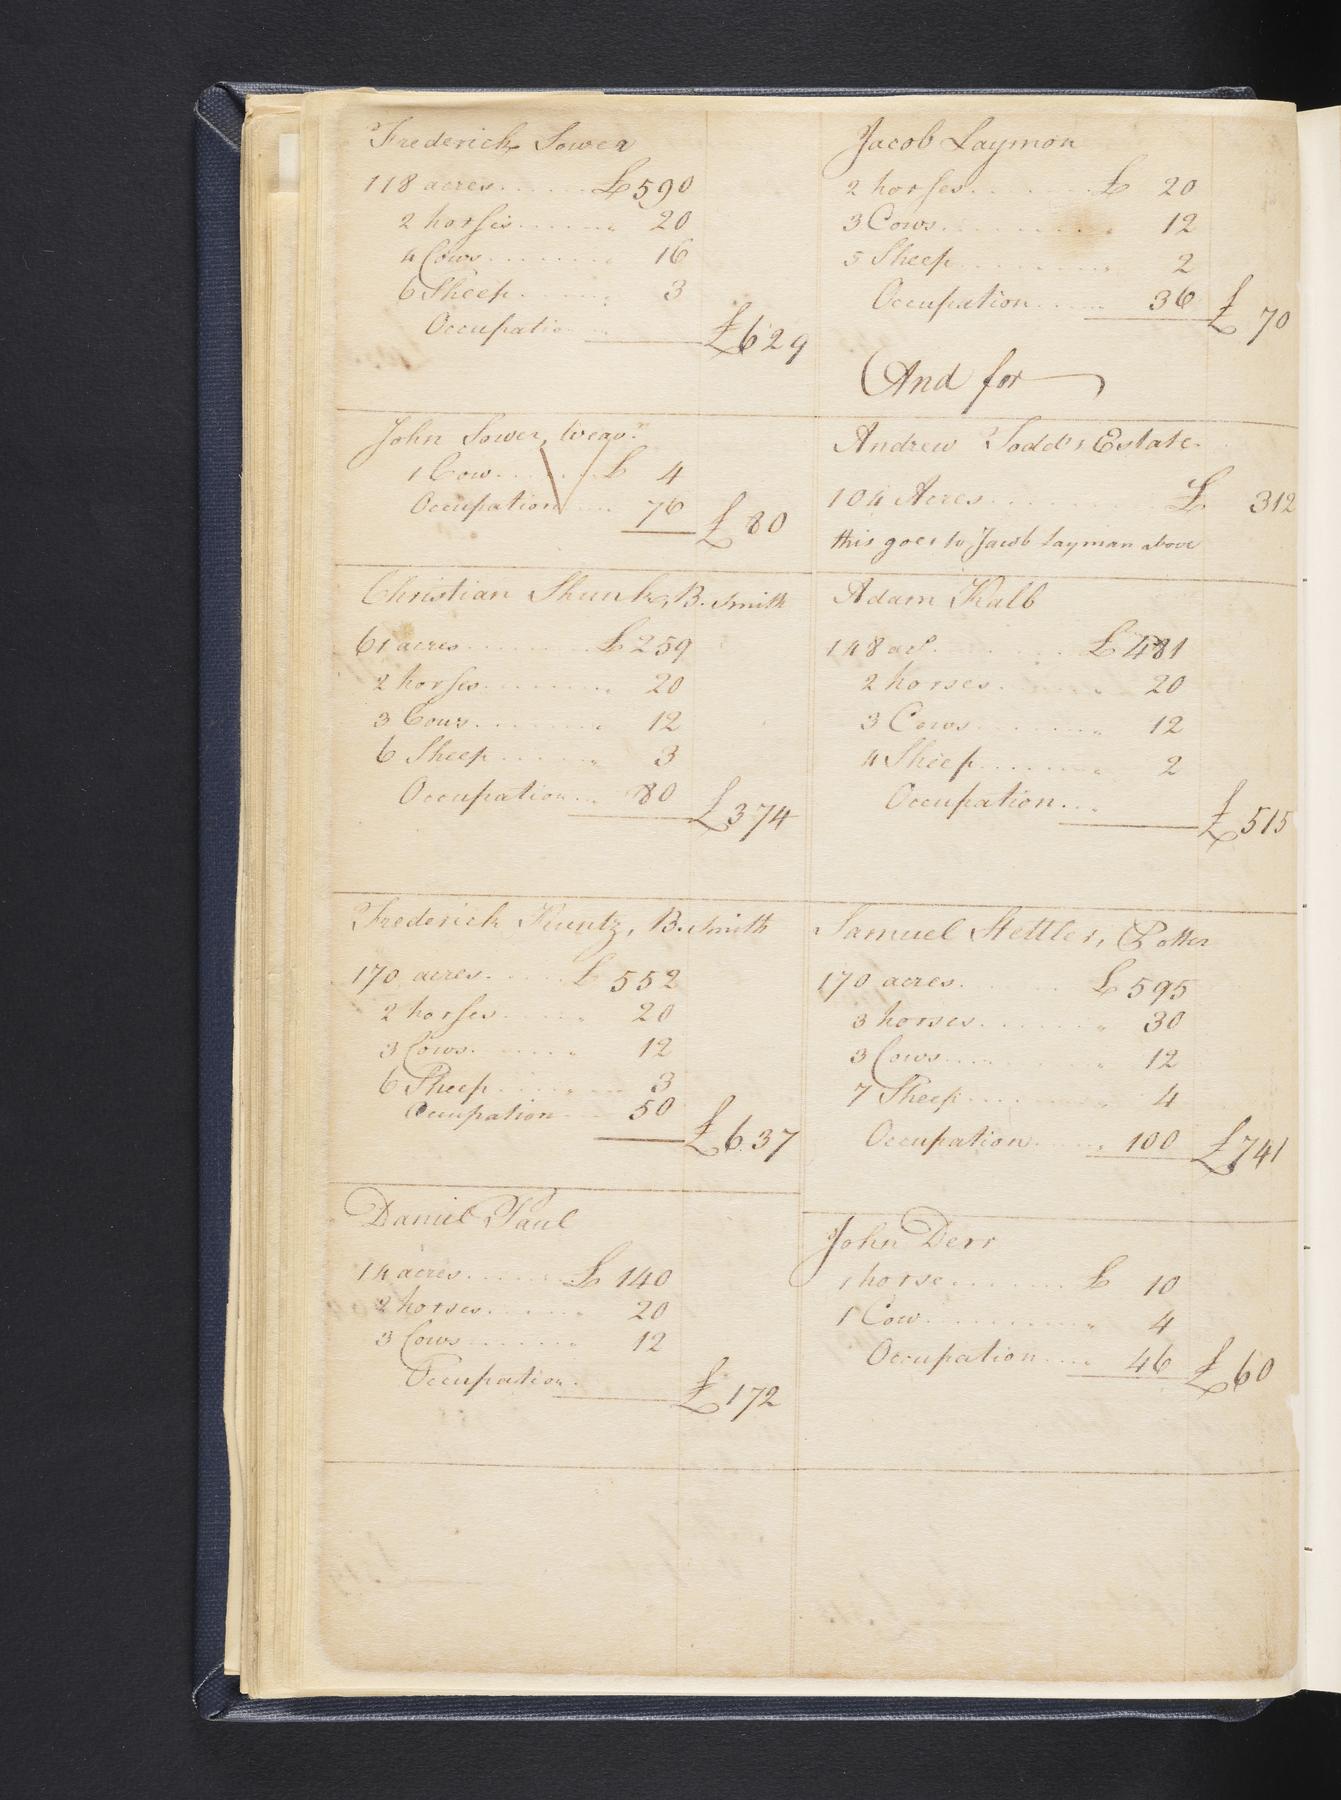 Frederick Sower
118 acres...... £590
2 horses...... 20
4 Cows....... 16
6 Sheep...... 3
Occupation...
£629
John Sower, Weavr.
1 Cow...... £ 4
Occupation.... 76
£ 80
Christian Shunk, B. Smith
61 acres....... £259
2 horses....... 20
3 Cows....... 12
6 Sheep...... 3
Occupation... 80
£374
Frederick Kuntz, B. Smith
170 acres...... £ 552
2 horses...... 20
3 Cows....... 12
6 Sheep....... 3
Occupation.... 50
£637
Daniel Paul
14 acres....... £ 140
2 horses....... 20
3 Cows....... 12
Occupation.
£172
Jacob Laymon
2 horses...... £ 20
3 Cows....... 12
5 Sheep....... 2
Occupation..... 36
£ 70
And for
Andrew Todd's Estate.
104 Acres....... £ 312
this goes to Jacob Layman above
Adam Kalb
148 acs....... £ 481
2 horses...... 20
3 Cows....... 12
4 Sheep....... 2
Occupation...
£515
Samuel Stettler, Potter
170 acres...... £595
3 horses....... 30
3 Cows....... 12
7 Sheep....... 4
Occupation..... 100
£741
John Derr
1 horse....... £ 10
1 Cow........ 4
Occupation.... 46
£60